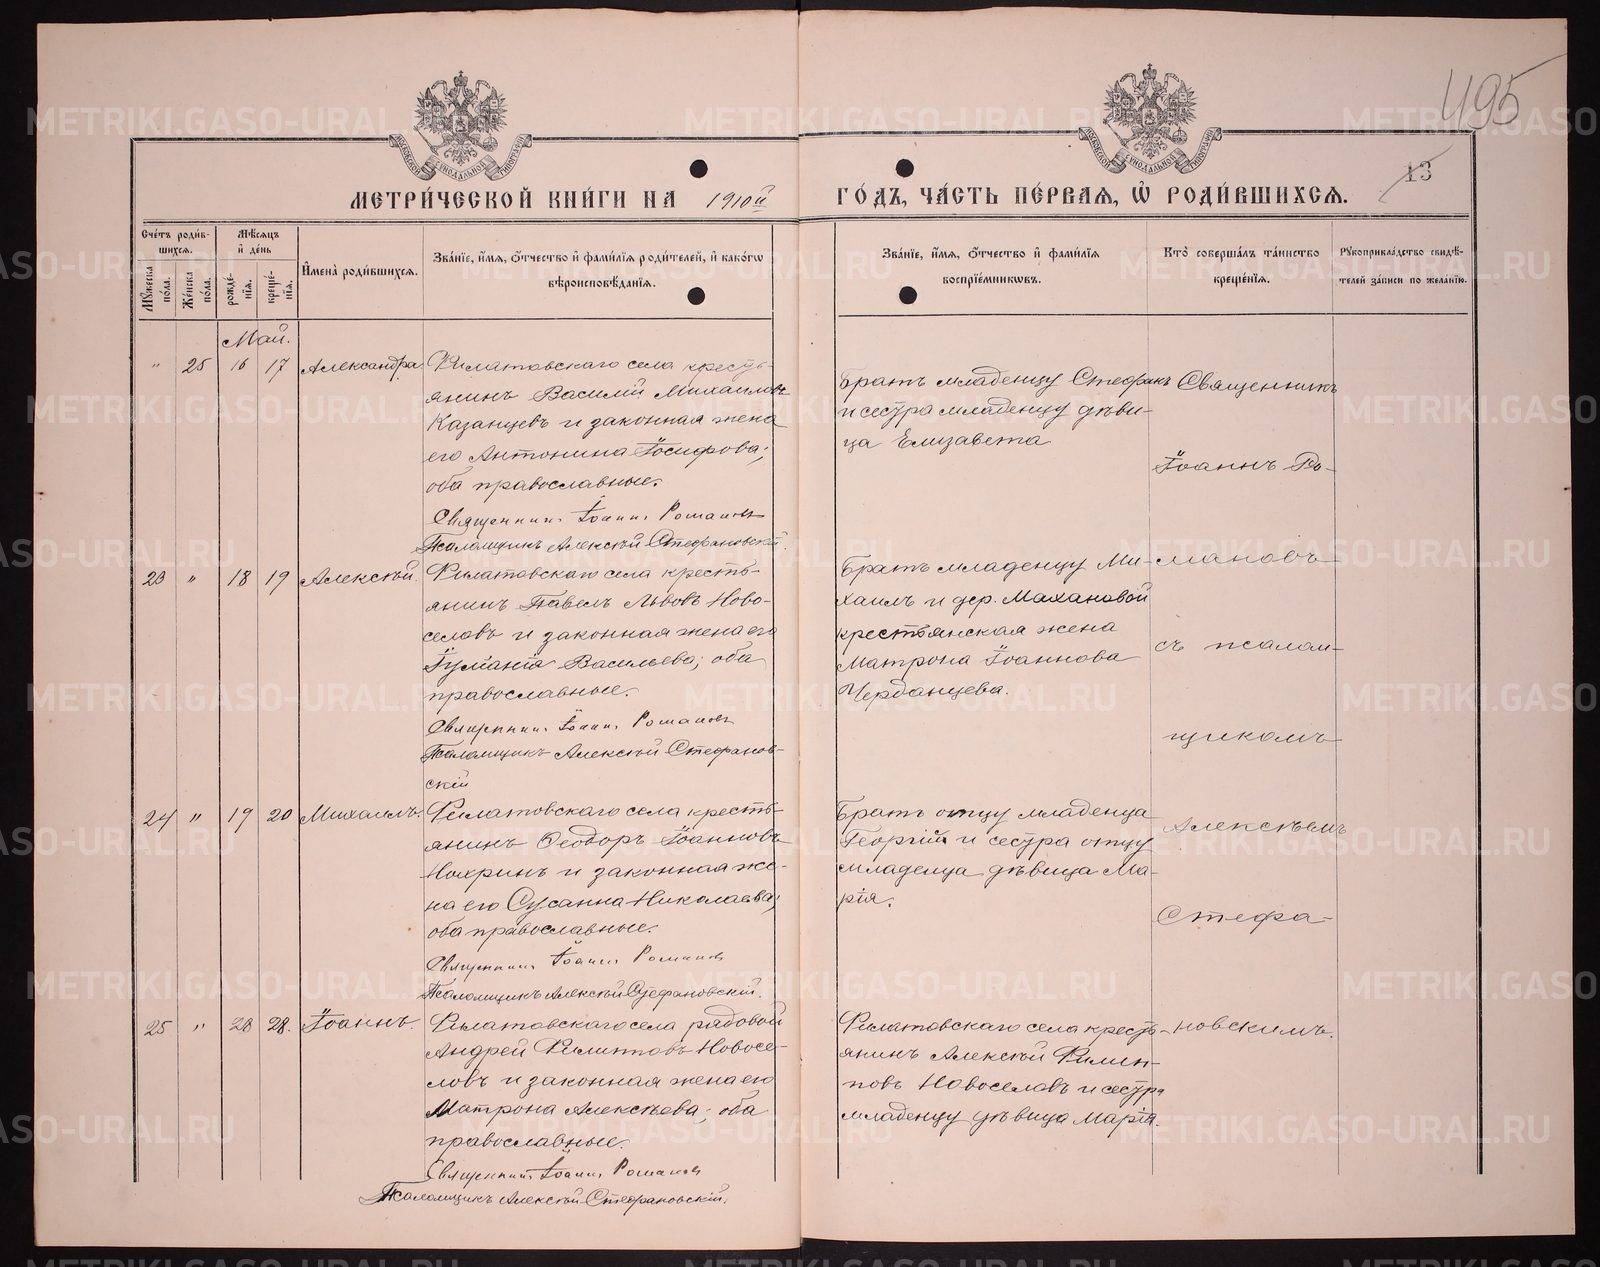 495
13
МОСКОВСКОЙ СѴНОДАЛЬНОЙ ТИПОГРАФІИ
МОСКОВСКОЙ СѴНОДАЛЬНОЙ ТИПОГРАФІИ
МЕТРИ́ЧЕСКОЙ КНИ́ГИ НА 1910й ГО́ДЪ, ЧА́СТЬ ПЕ́РВАЯ, Ѽ РОДИ́ВШИХСЯ.
Сче́тъ роди́в-
шихся.
Мꙋжеска по́ла.
Же́нска по́ла.
Мѣ́сяцъ
и҆ де́нь
рожде́-
нія.
креще́-
нія.
И҆мена̀ роди́вшихся.
Зва́ніе, и҆́мя, ѻ҆́тчество и҆ фами́лія роди́телей, и҆ како́гѡ
вѣроисповѣ́данія.
Зва́ніе, и҆́мя, ѻ҆́тчество и҆ фами́лія
воспріе́мниковъ.
Кто̀ соверша́лъ та́инство
креще́нія.
Рꙋкоприкла́дство свидѣ́-
телей за́писи по жела́нію.
Май.
" 25 16 17 Александра
Филатовскаго села кресть-
янинъ Василій Михаиловъ
Казанцевъ и законная жена
его Антонина Іосифова;
оба православные.
Священник Іоанн Романовъ
Псаломщикъ Алексѣй Стефановскій.
Братъ младенцу Стефанъ
и сестра младенцу дѣви-
ца Елизавета
23 " 18 19 Алексѣй.
Филатовскаго села кресть-
янинъ Павелъ Львовъ Ново-
селовъ и законная жена его
Іуліанія Васильева; оба
православные.
Священник Іоанн Романовъ
Псаломщикъ Алексѣй Стефанов-
скій
Братъ младенцу Ми-
хаилъ и дер. Махановой
крестьянская жена
Матрона Іоаннова
Черданцева.
24 " 19 20 Михаилъ.
Филатовскаго села кресть-
янинъ Ѳеодоръ Іоанновъ
Нохринъ и законная же-
на его Сусанна Николаева;
оба православные.
Священник Іоанн Романов
Псаломщикъ Алексѣй Стефановскій.
Братъ отцу младенца
Георгій и сестра отцу
младенца дѣвица Ма-
рія.
25 " 28 28. Іоаннъ.
Филатовскаго села рядовой
Андрей Филипповъ Новосе-
ловъ и законная жена его
Матрона Алексѣева; оба
православные.
Священник Іоанн Романов
Псаломщикъ Алексѣй Стефановскій.
Филатовскаго села кресть-
янинъ Алексѣй Филип-
повъ Новоселовъ и сестра
младенцу дѣвица Марія.
Священникъ
Іоаннъ Ро-
мановъ
съ псалом-
щикомъ
Алексѣемъ
Стефа-
новскимъ.
METRIKI.GASO-URAL.RU